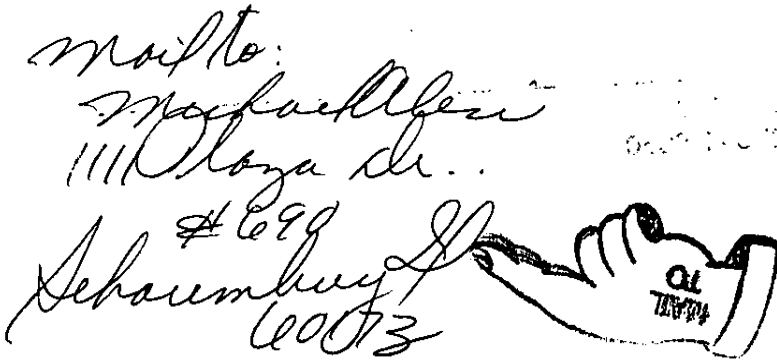 Mail to:
Michael Alesi
1111 Plaza Dr..
#690
Schaumburg Il
MAIL
TO